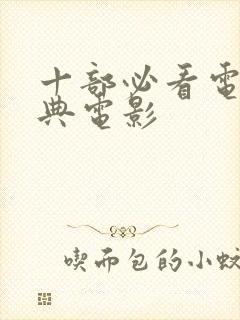 十部必看電
典電影
喫而包的小蚊